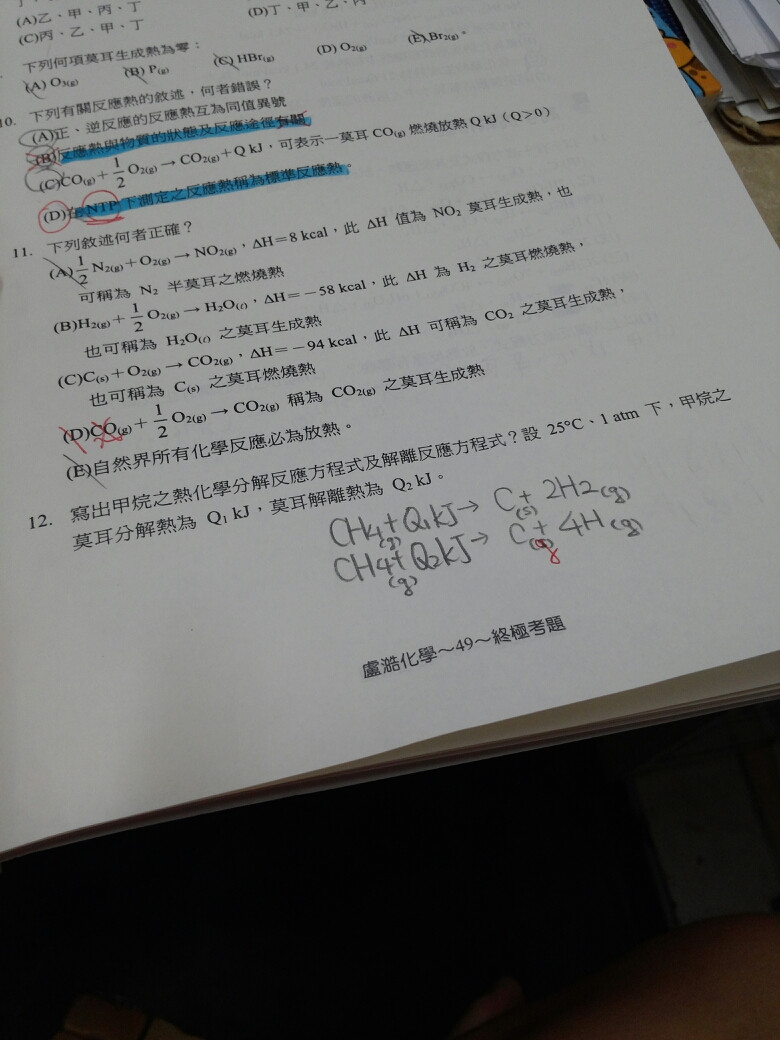 (A)乙、甲、丙、丁
(D)丁、甲、乙、丙
(C)丙、乙、甲、丁
下列何項莫耳生成熱為零：
(A) O3(g) (B) P(g) (C) HBr(g) (D) O2(g) (E) Br2(g)。
10. 下列有關反應熱的敘述，何者錯誤？
(A)正、逆反應的反應熱互為同值異號
(B)反應熱與物質的狀態及反應途徑有關
(C)CO(g)＋1/2 O2(g) → CO2(g)＋Q kJ，可表示一莫耳 CO(g) 燃燒放熱 Q kJ（Q＞0）
(D)在 NTP 下測定之反應熱稱為標準反應熱。
11. 下列敘述何者正確？
(A) 1/2 N2(g)＋O2(g) → NO2(g)，ΔH＝8 kcal，此 ΔH 值為 NO2 莫耳生成熱，也
可稱為 N2 半莫耳之燃燒熱
(B)H2(g)＋1/2 O2(g) → H2O(ℓ)，ΔH＝－58 kcal，此 ΔH 為 H2 之莫耳燃燒熱，
也可稱為 H2O(ℓ) 之莫耳生成熱
(C)C(s)＋O2(g) → CO2(g)，ΔH＝－94 kcal，此 ΔH 可稱為 CO2 之莫耳生成熱，
也可稱為 C(s) 之莫耳燃燒熱
(D)CO(g)＋1/2 O2(g) → CO2(g) 稱為 CO2(g) 之莫耳生成熱
(E)自然界所有化學反應必為放熱。
12. 寫出甲烷之熱化學分解反應方程式及解離反應方程式？設 25°C、1 atm 下，甲烷之
莫耳分解熱為 Q1 kJ，莫耳解離熱為 Q2 kJ。
CH4(g)+Q1kJ→ C(s)+ 2H2(g)
CH4(g)+Q2kJ→ C(g)+ 4H(g)
盧澔化學～49～終極考題